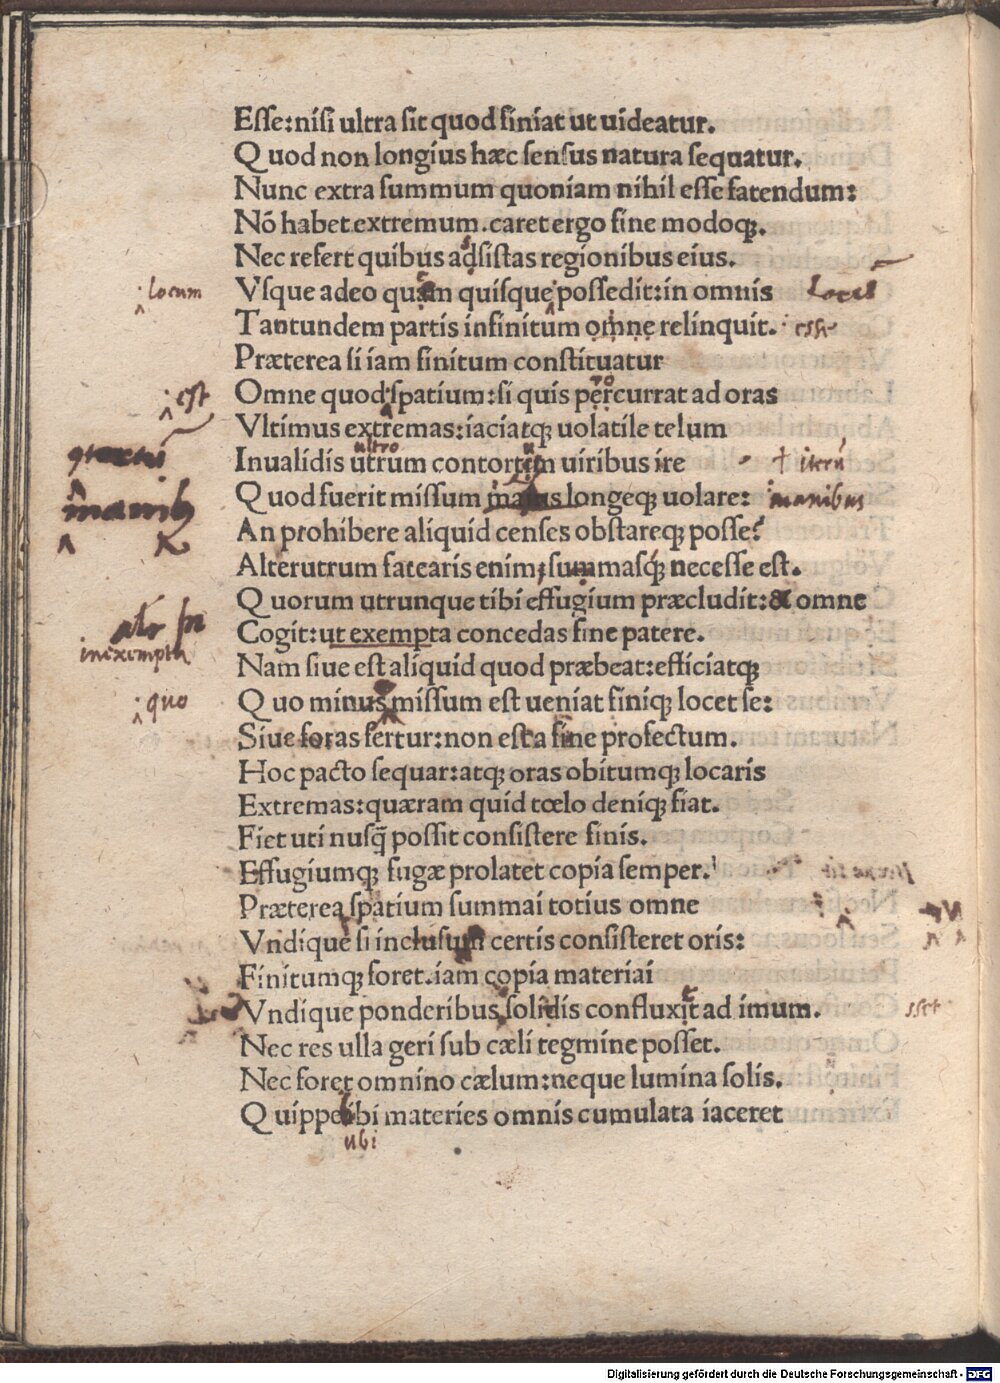 Esse:nisi ultra sit quod finiat ut uideatur.
Q uod non longius hæc sensus natura sequatur.
Nunc extra summum quoniam nihil esse fatendum:
Nō habet extremum.caret ergo fine modoq;.
Nec refert quibus adsistas regionibus eius.
: locum
Vsque adeo quam quisque possedit:in omnis
Tantundem partis infinitum omne relinquit.
: esse
Præterea si iam finitum constituatur
: est
Omne quod spatium:si quis percurrat ad oras
ro
Vltimus extremas:iaciatq; uolatile telum
ultro
Inualidis utrum contortum uiribus ire
† iterū
Quod fuerit missum longeq; uolare:
manibus
An prohibere aliquid censes obstareq; posse?
Alterutrum fatearis enim;summasq; necesse est.
Q uorum utrunque tibi effugium præcludit:& omne
Cogit:ut exempta concedas fine patere.
inexempta
Nam siue est aliquid quod præbeat:efficiatq;
: quo
Q uo minus missum est ueniat finiq; locet se:
Siue foras fertur:non est a fine profectum.
Hoc pacto sequar:atq; oras obitumq; locaris
Extremas:quæram quid tœlo deniq; fiat.
Fiet uti nusq̄ possit consistere finis.
Effugiumq; fugæ prolatet copia semper.
Præterea spatium summai totius omne
Vndique si inclusum certis consisteret oris:
Finitumq; foret.iam copia materiai
Vndique ponderibus solidis confluxit ad imum.
sset
Nec res ulla geri sub cæli tegmine posset.
Nec foret omnino cælum:neque lumina solis.
Q uippe ibi materies omnis cumulata iaceret
ubi
Digitalisierung gefördert durch die Deutsche Forschungsgemeinschaft - DFG